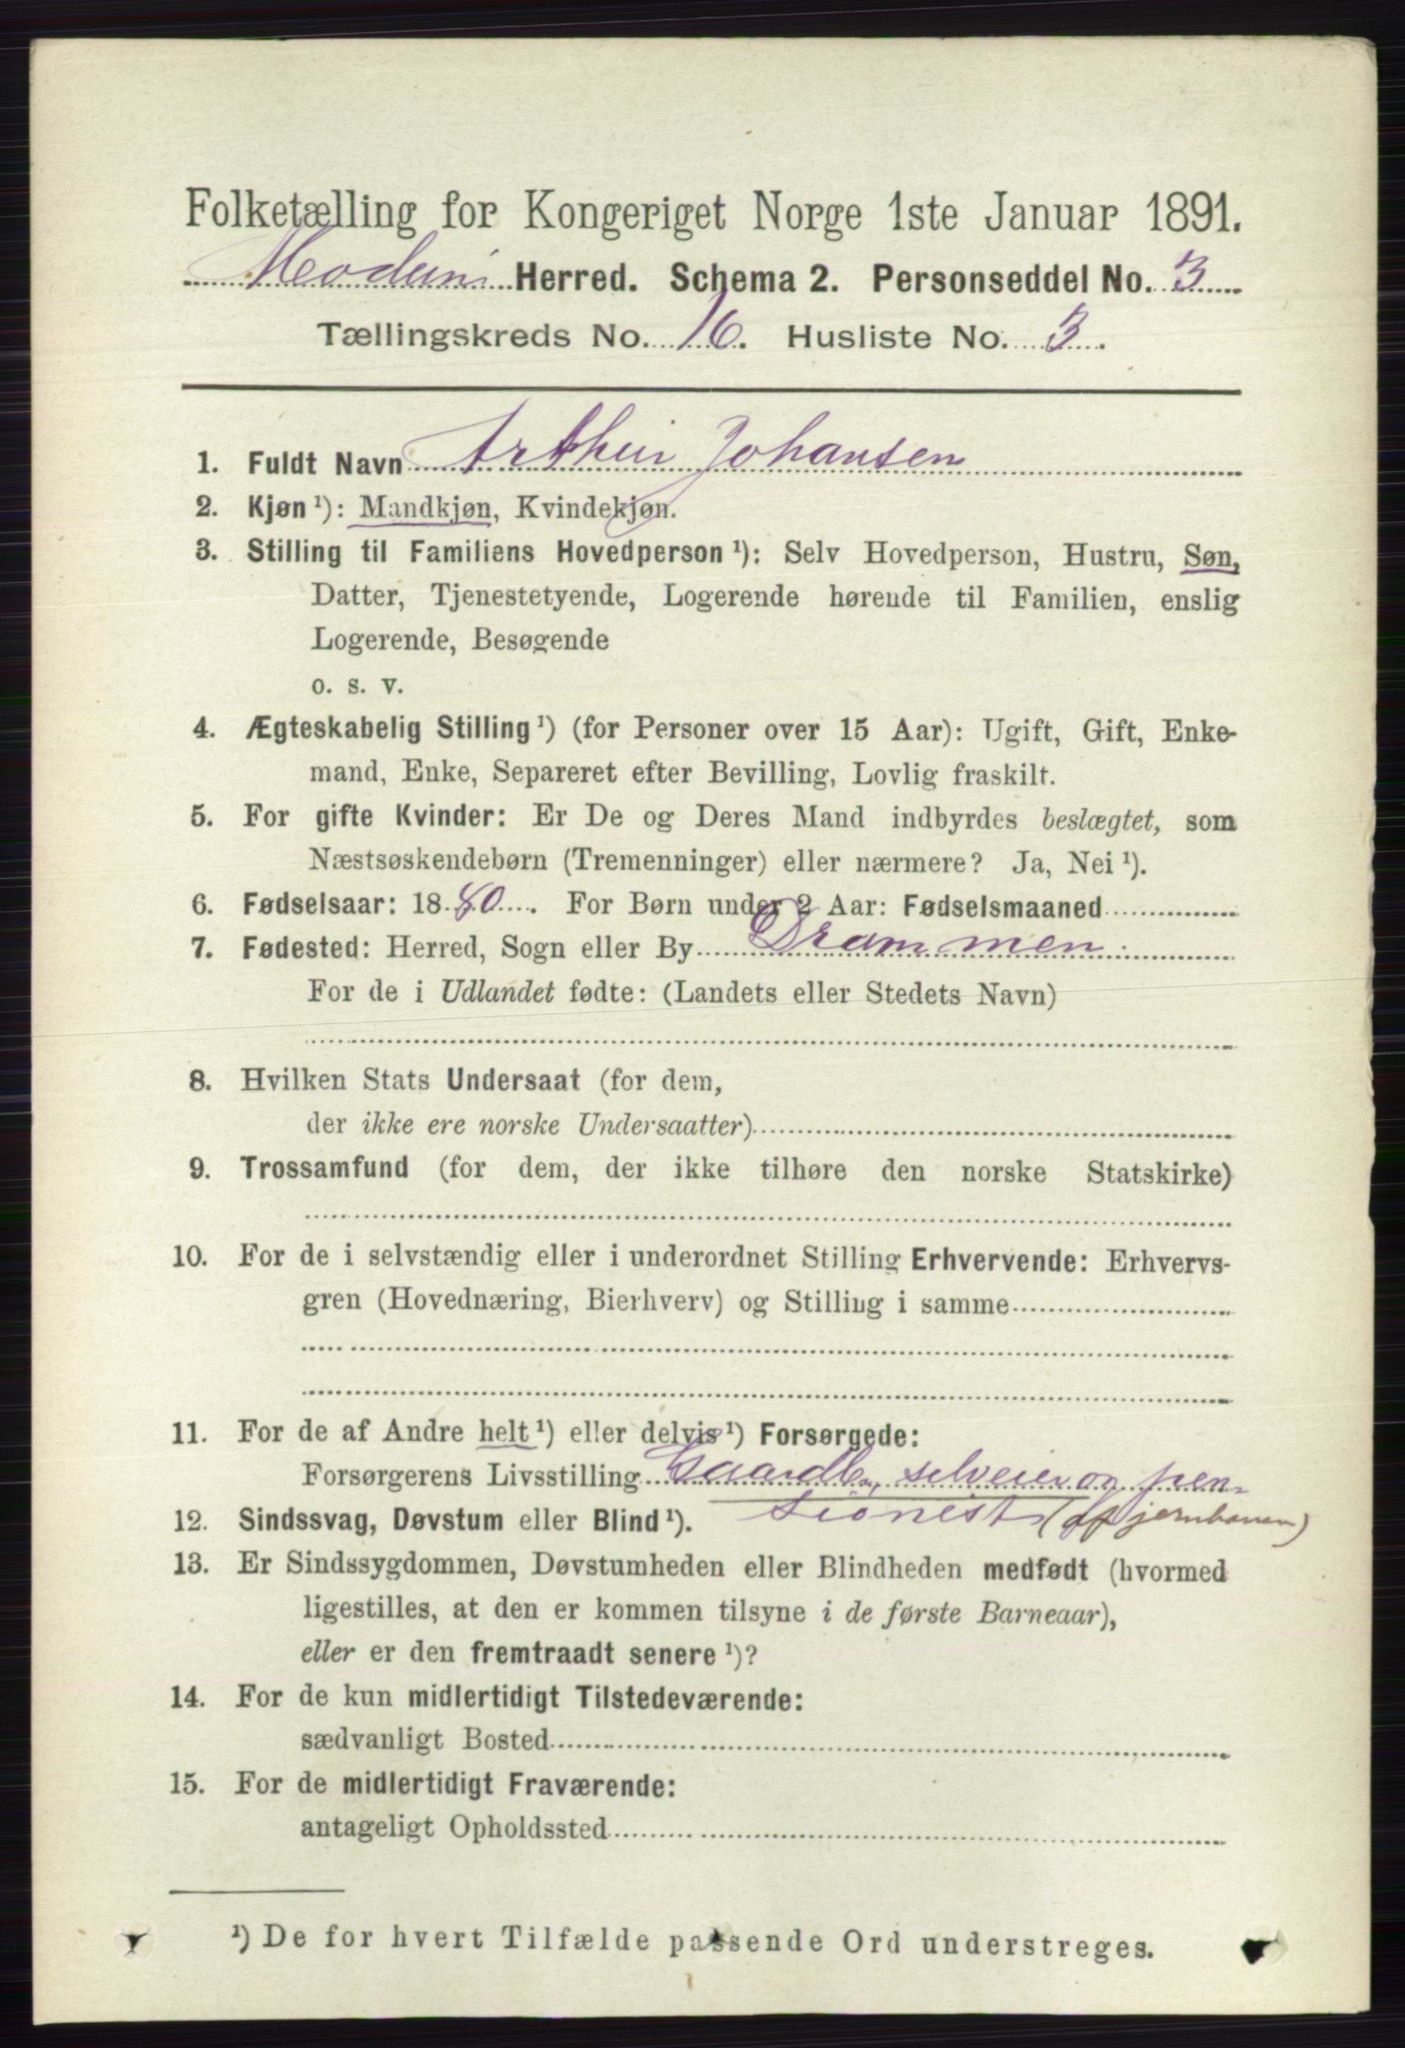 Folketælling for Kongeriget Norge 1ste Januar 1891.
Modum Herred. Schema 2. Personseddel No. 3
Tællingskreds No. 16. Husliste No. 3.
1. Fuldt Navn Arthur Johansen
2. Kjøn¹): Mandkjøn, Kvindekjøn.
3. Stilling til Familiens Hovedperson¹): Selv Hovedperson, Hustru, Søn,
Datter, Tjenestetyende, Logerende hørende til Familien, enslig
Logerende, Besøgende
o. s. v.
4. Ægteskabelig Stilling¹) (for Personer over 15 Aar): Ugift, Gift, Enke-
mand, Enke, Separeret efter Bevilling, Lovlig fraskilt.
5. For gifte Kvinder: Er De og Deres Mand indbyrdes beslægtet, som
Næstsøskendebørn (Tremenninger) eller nærmere? Ja, Nei¹).
6. Fødselsaar: 1880. For Børn under 2 Aar: Fødselsmaaned
7. Fødested: Herred, Sogn eller By Drammen.
For de i Udlandet fødte: (Landets eller Stedets Navn)
8. Hvilken Stats Undersaat (for dem,
der ikke ere norske Undersaatter)
9. Trossamfund (for dem, der ikke tilhøre den norske Statskirke)
10. For de i selvstændig eller i underordnet Stilling Erhvervende: Erhvervs-
gren (Hovednæring, Bierhverv) og Stilling i samme
11. For de af Andre helt¹) eller delvis¹) Forsørgede:
Forsørgerens Livsstilling Gaardb., selveier og pen-
sionist (af jernbanen)
12. Sindssvag, Døvstum eller Blind¹).
13. Er Sindssygdommen, Døvstumheden eller Blindheden medfødt (hvormed
ligestilles, at den er kommen tilsyne i de første Barneaar),
eller er den fremtraadt senere¹)?
14. For de kun midlertidigt Tilstedeværende:
sædvanligt Bosted
15. For de midlertidigt Fraværende:
antageligt Opholdssted
¹) De for hvert Tilfælde passende Ord understreges.